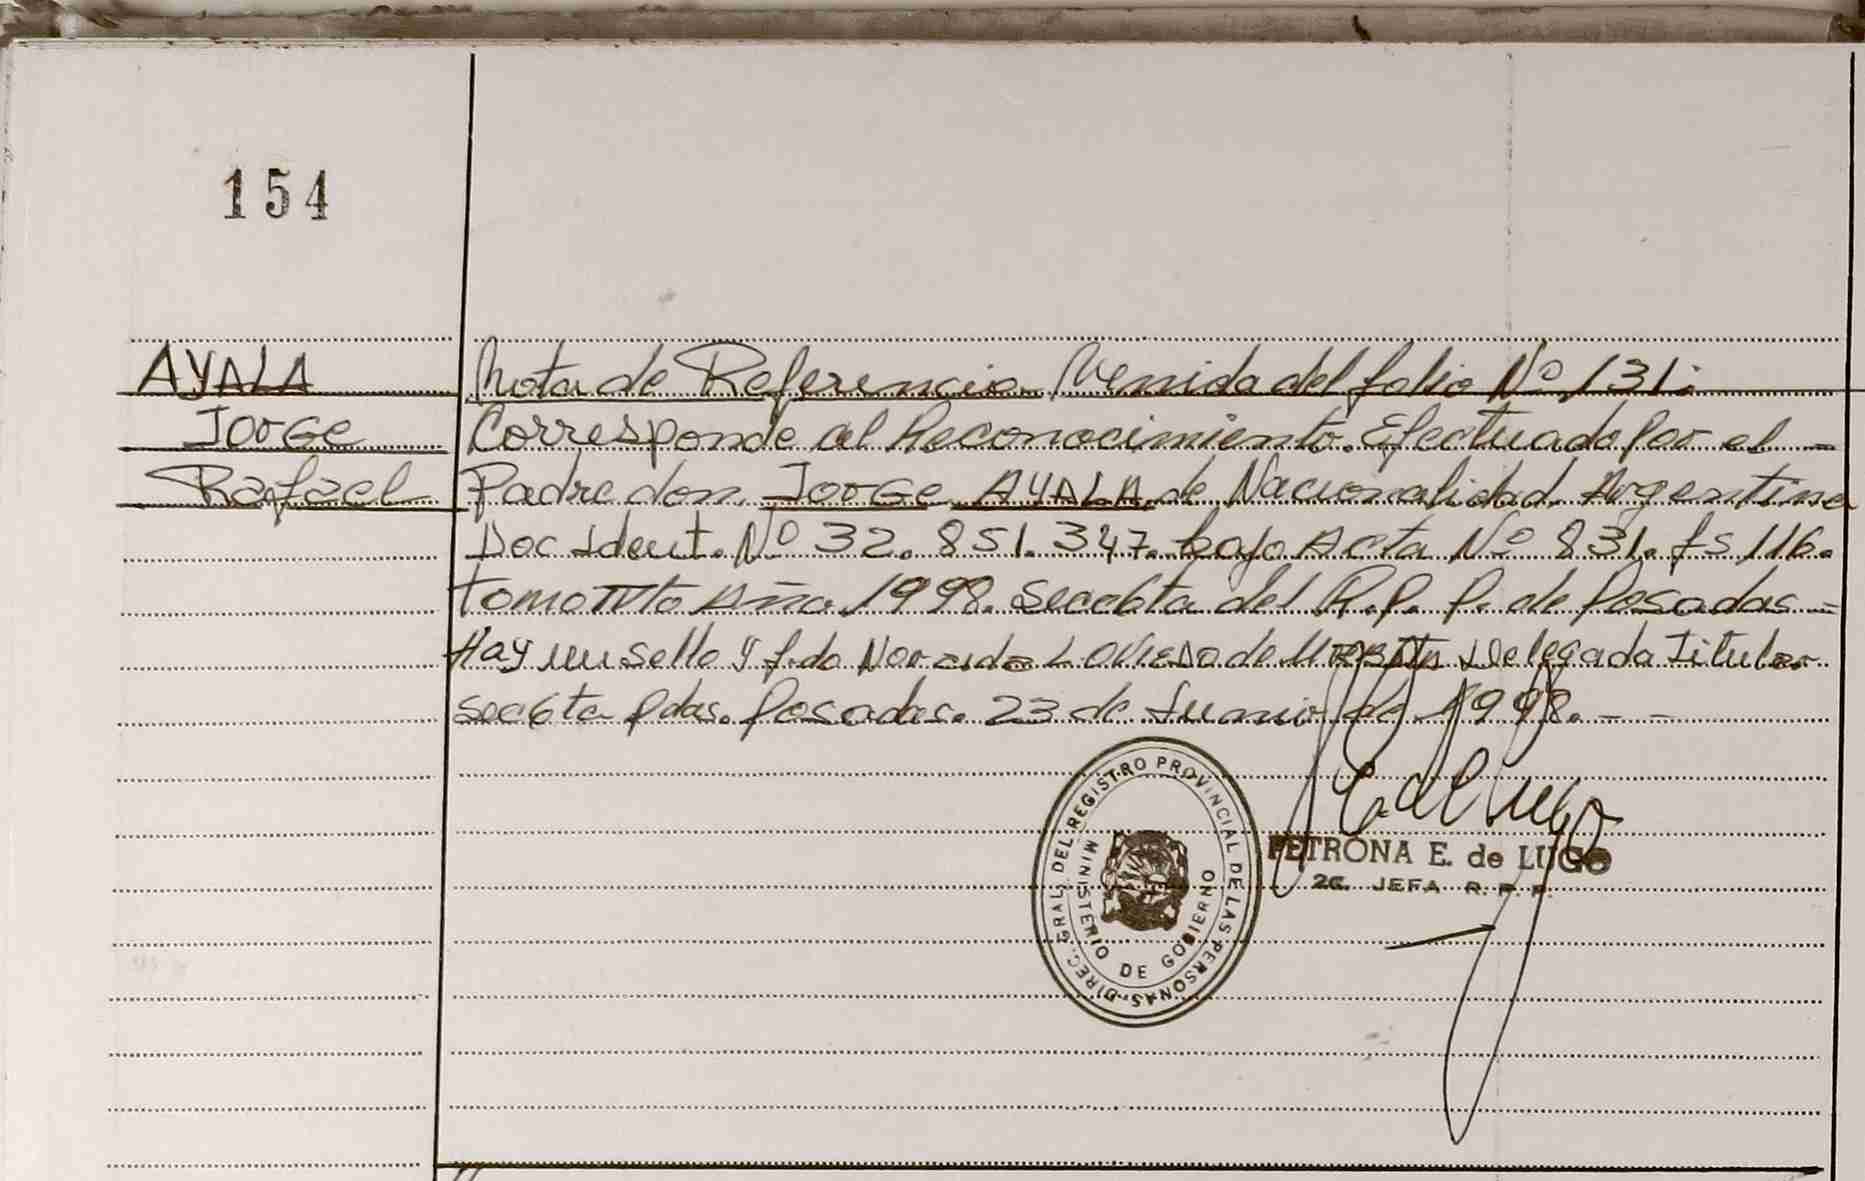 154
AYALA
Jorge
Rafael
Nota de Referencia Venida del folio Nº 131:
Corresponde al Reconocimiento. Efectuado Por el =
Padre don Jorge AYALA de Nacionalidad Argentina
Doc Ident. Nº 32.851.347. bajo Acta Nº 831. fs 116.
tomo Año 1998. Secc 6ta del R.P. P. de Posadas =
Hay un sello y f.do L Oviedo de Delegada Titular
Secc 6ta Pdas. Posadas. 23 de Junio de 1998. - -
DIREC. GRAL. DEL REGISTRO PROVINCIAL DE LAS PERSONAS
MINISTERIO DE GOBIERNO
PETRONA E. de LUGO
JEFA R. P. P.